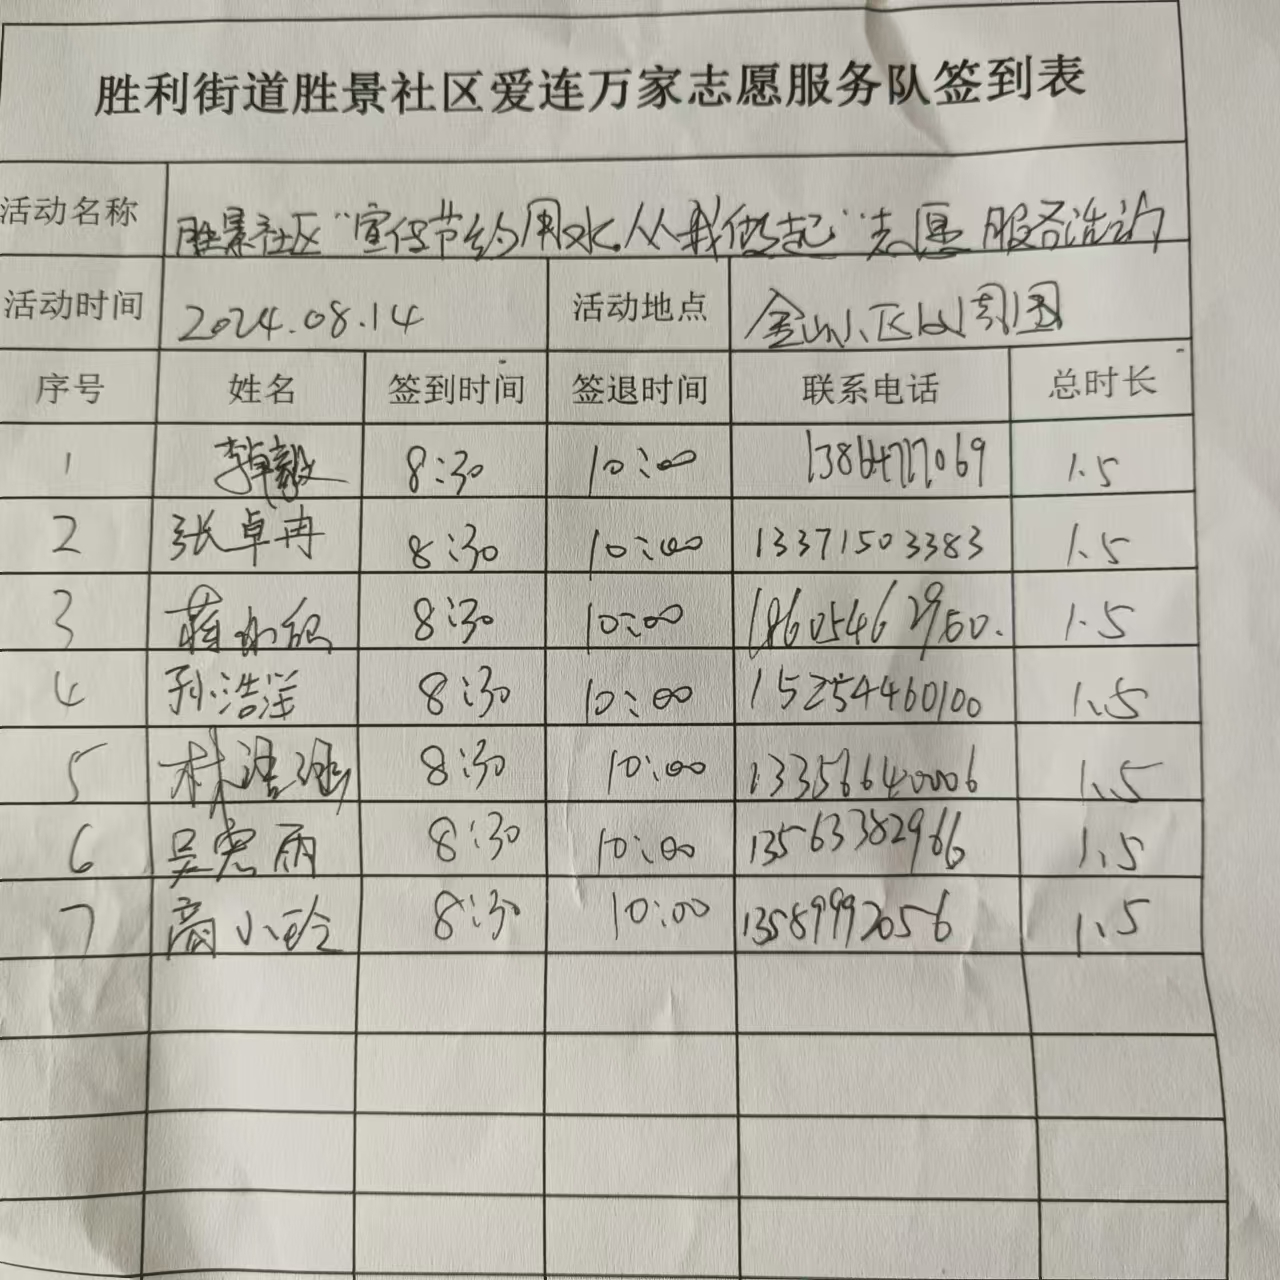 胜利街道胜景社区爱连万家志愿服务队签到表
活动名称 胜景社区“宣传节约用水,从我做起”志愿服务活动
活动时间 2024.08.14 活动地点 金山小区以周围
序号 姓名 签到时间 签退时间 联系电话 总时长
1 李卓毅 8:30 10:00 1.5
2 张卓冉 8:30 10:00 13371503383 1.5
3 8:30 10:00 18605462950. 1.5
4 孙浩洋 8:30 10:00 15254460100 1.5
5 林浩涵 8:30 10:00 13356640006 1.5
6 吴宪雨 8:30 10:00 13563382966 1.5
7 商小玲 8:30 10:00 13589992056 1.5